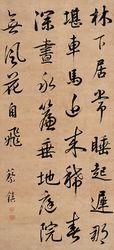 林下居常睡起遲那
堪車馬近來稀春
深晝永簾垂地庭院
無風花自飛
蔡